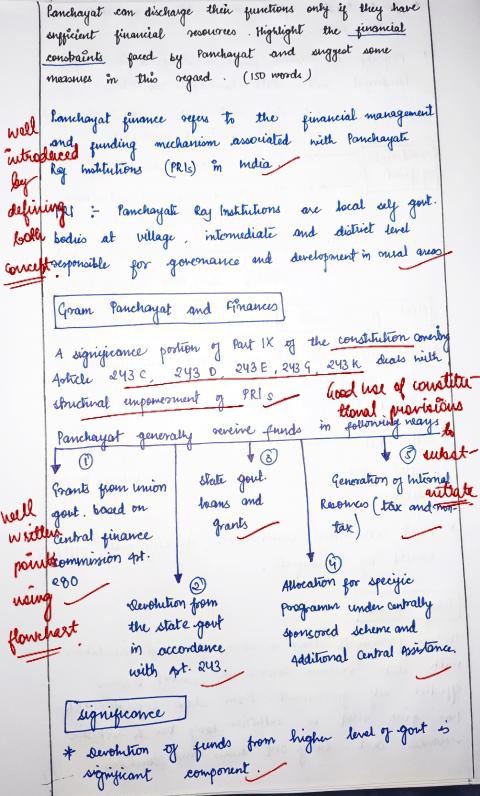 Panchayat can discharge their functions only if they have
sufficient financial resources. Highlight the financial
constraints faced by Panchayat and suggest some
measures in this regard. (150 words)
Panchayat finance refers to the financial management
and funding mechanism associated with Panchayate
Raj Institutions (PRIs) in India
well
introduced
by
defining
both
concept.
PRI :- Panchayate Raj Institutions are local self govt.
bodies at village, intermediate and district level
responsible for governance and development in rural areas
Gram Panchayat and Finances
A significance portion of Part IX of the constitution covering
Article 243 C, 243 D, 243 E, 243 G, 243 K deals with
structural empowerment of PRIs
Good use of constitu-
tional provisions
to
subst-
antiate
Panchayat generally receive funds in following ways
①
Grants from union
govt. based on
central finance
commission Art.
280
③
State govt.
loans and
grants
⑤
Generation of Internal
Resources (tax and non-
tax)
well
written
points
using
flowchart.
②
Devolution from
the state govt
in accordance
with Art. 243.
④
Allocation for specific
programm under centrally
sponsored scheme and
Additional Central Assistance.
Significance
* Devolution of funds from higher level of govt is
significant component.